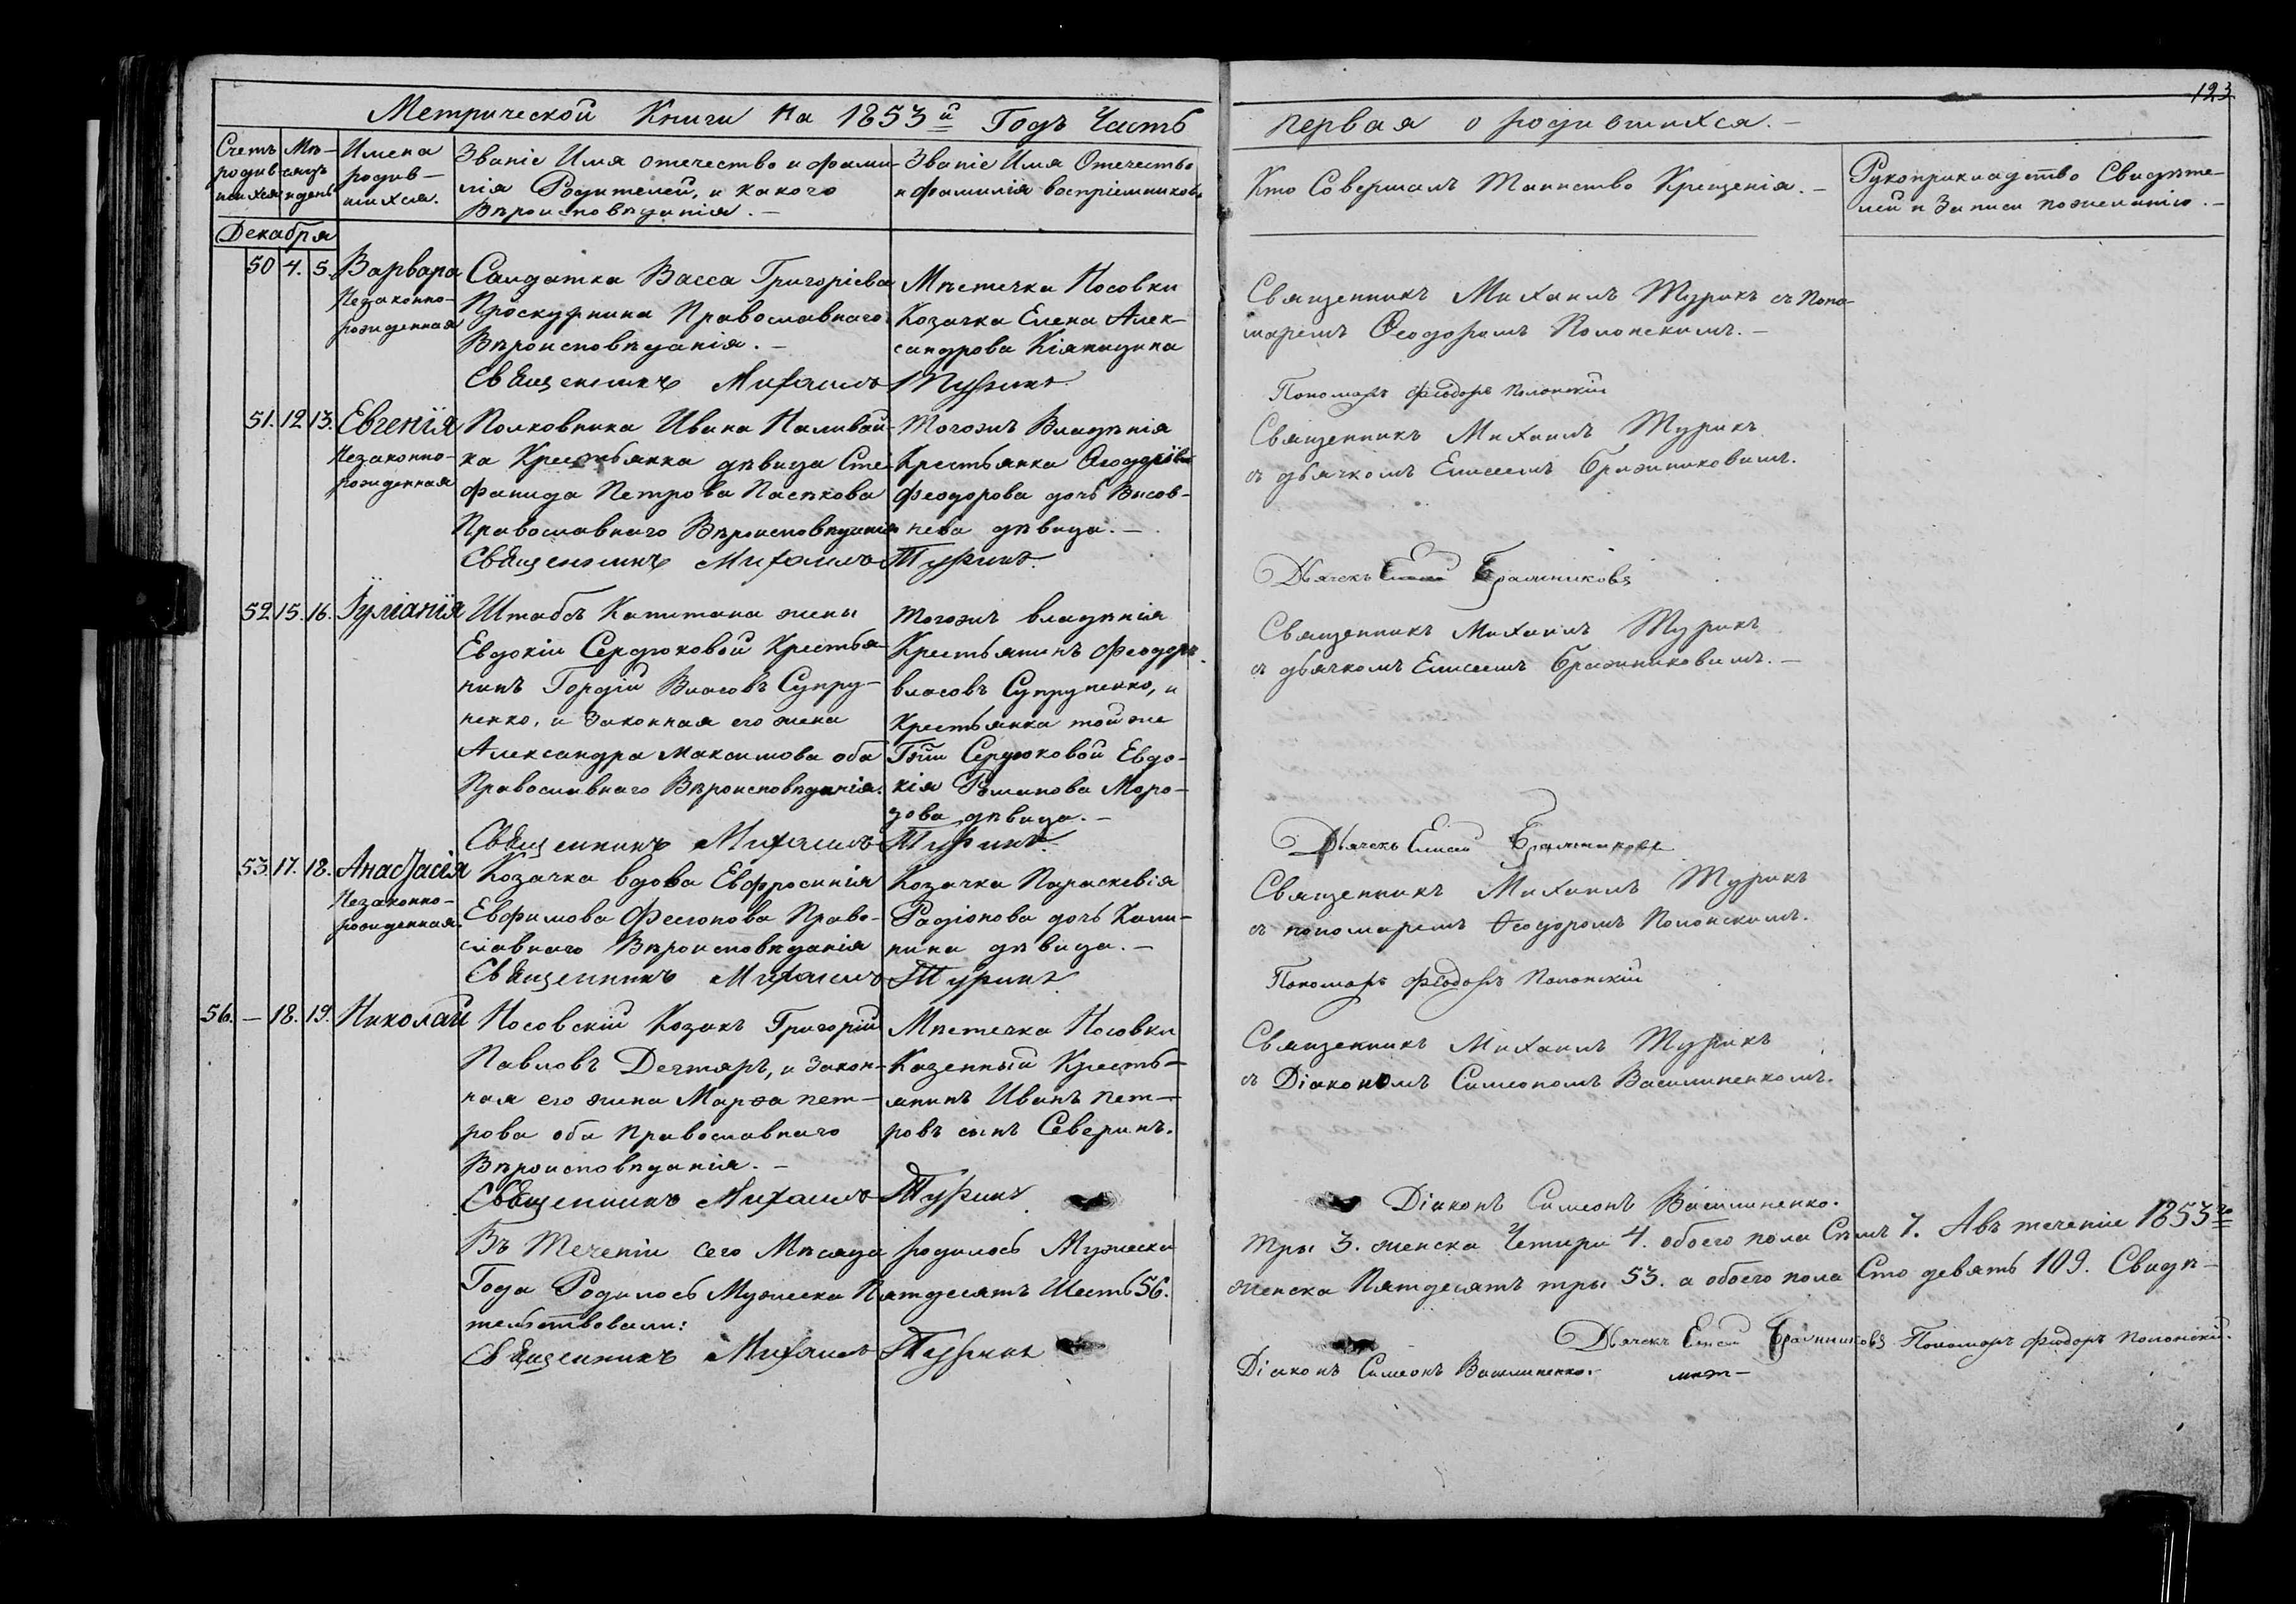 123
Метрической Книги на 1853й Годъ Часть
первая о родившихся.
Счетъ родив-шихся
Мѣ-сяцъ и день
Имена родив-шихся.
Званіе Имя отечество и фами-
лія Родителей, и какого
Вѣроисповѣданія.
Званіе Имя Отечество
и фамилія воспріемниковъ
Кто Совершалъ Таинство Крещенія.
Рукоприкладство Свидѣте-
лей п Записи по желанію.
Декабря
50 4. 5. Варвара
Незаконно-
рожденная
Салдатка Васса Григоріева
Проскурнина Православнаго
Вѣроисповѣданія.
Мѣстечка Носовки
Козачка Елена Алек-
сандрова
Священникъ Михаилъ Турикъ съ Поно-
маремъ Ѳеодоромъ Полонскимъ.
Священникъ Михаилъ Турикъ
Пономарь Феодоръ Полонскій
51. 12. 13. Евгенія
Незаконно-
рожденная
Полковника Ивана Наливай-
ка Крестьянка дѣвица Сте-
фанида Петрова Пасѣкова
Православнаго Вѣроисповѣданія
Тогожъ Владѣнія
Крестьянка
Феодорова дочь Висов-
нева дѣвица.
Священникъ Михаилъ Турикъ
съ дьячкомъ Елисеемъ Бражниковимъ.
Священникъ Михаилъ Турикъ
Дьячекъ Елисей Бражниковъ
52 15. 16. Іуліанія
Штабсъ Капитана жены
Евдокіи Сердюковой Крестья-
нинъ Гордій Власовъ Супру-
ненко, и Законная его жена
Александра Максимова оба
Православнаго Вѣроисповѣданія.
Тогожъ владѣнія
Крестьянинъ Феодоръ
власовъ Супруненко, и
Крестьянка той же
Гжи Сердюковой Евдо-
кія Романова Моро-
зова дѣвица.
Священникъ Михаилъ Турикъ
съ дьячкомъ Елисеемъ Бражниковимъ.
Священникъ Михаилъ Турикъ
Дьячекъ Елисей Бражниковъ
53. 17. 18. Анастасія
Незаконно-
рожденная.
Козачка вдова Евфросинія
Евфимова Фесюнова Право-
славнаго Вѣроисповѣданія
Козачка Параскевія
Радіонова дочь Кали-
нина дѣвица.
Священникъ Михаилъ Турикъ
съ пономаремъ Ѳеодоромъ Полонскимъ.
Священникъ Михаилъ Турикъ
Пономарь Феодоръ Полонскій
56. — 18. 19. Николай
Носовскій Козакъ Григорій
Павловъ Дегтяръ, и закон-
ная его жена Марѳа пет-
рова оба Православнаго
Вѣроисповѣданія.
Мѣстечка Носовки
Казенный Кресть-
янинъ Иванъ Пет-
ровъ сынъ Северинъ.
Священникъ Михаилъ Турикъ
съ Діакономъ Симеономъ Василиненкомъ.
Священникъ Михаилъ Турикъ
Діаконъ Симеонъ Василиненко.
Въ Теченіи сего Мѣсяца родилось Мужеска три 3. женска Четыри 4. обоего пола Семъ 7. А въ теченіе 1853го
Года Родилось Мужеска Пятдесятъ Шесть 56. женска Пятдесятъ три 53. а обоего пола Сто девять 109. Свидѣ-
тельствовали:
Священникъ Михаилъ Турикъ
Дьячекъ Елисей Бражниковъ Пономарь Феодоръ Полонскій.
Діаконъ Симеонъ Василиненко.